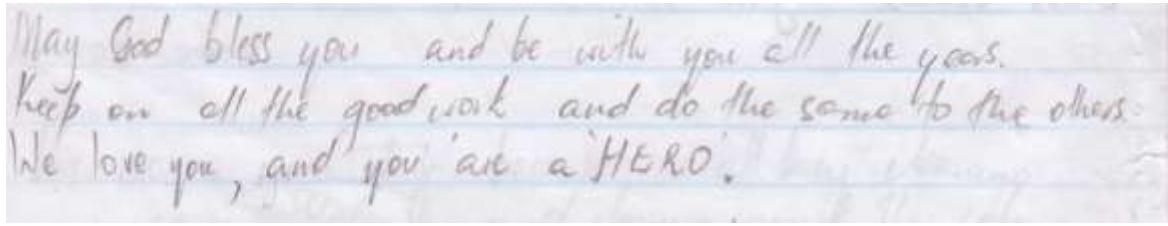 May God bless you and be with you all the years.
Keep on all the good work and do the same to the others.
We love you, and you are a 'HERO'.